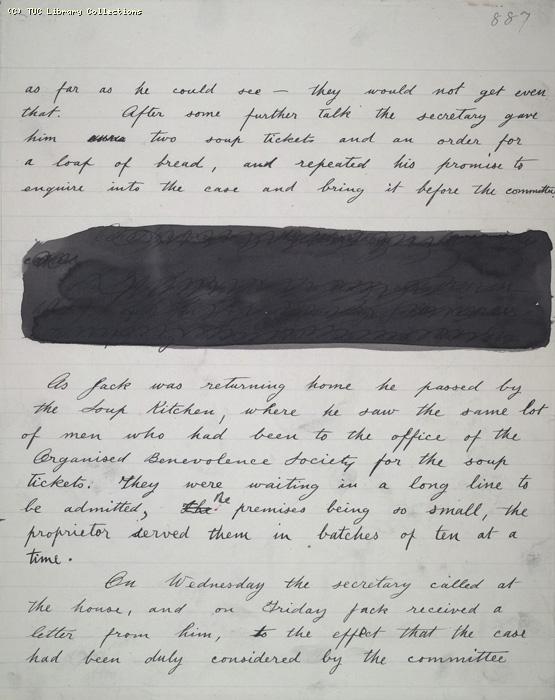 (C) TUC Library Collections
887
as far as he could see — they would not get even
that. After some further talk the secretary gave
him two soup tickets and an order for
a loaf of bread, and repeated his promise to
enquire into the case and bring it before the committee.
As Jack was returning home he passed by
the Soup Kitchen, where he saw the same lot
of men who had been to the office of the
Organised Benevolence Society for the soup
tickets. They were waiting in a long line to
be admitted, The premises being so small, the
proprietor served them in batches of ten at a
time.
On Wednesday the secretary called at
the house, and on Friday Jack received a
letter from him, to the effect that the case
had been duly considered by the committee